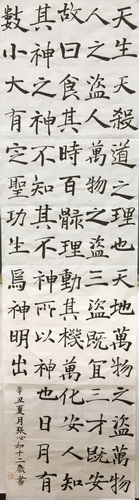 天生天殺道之理也天地萬物之盜萬物
人之盜人萬物之盜三盜既宜三才既安
故曰食其時百骸理動其機萬化安人知
其神之神不知其不神所以神也日月有
數小大有定聖功生焉神明出
辛丑夏月張心如十二歲書